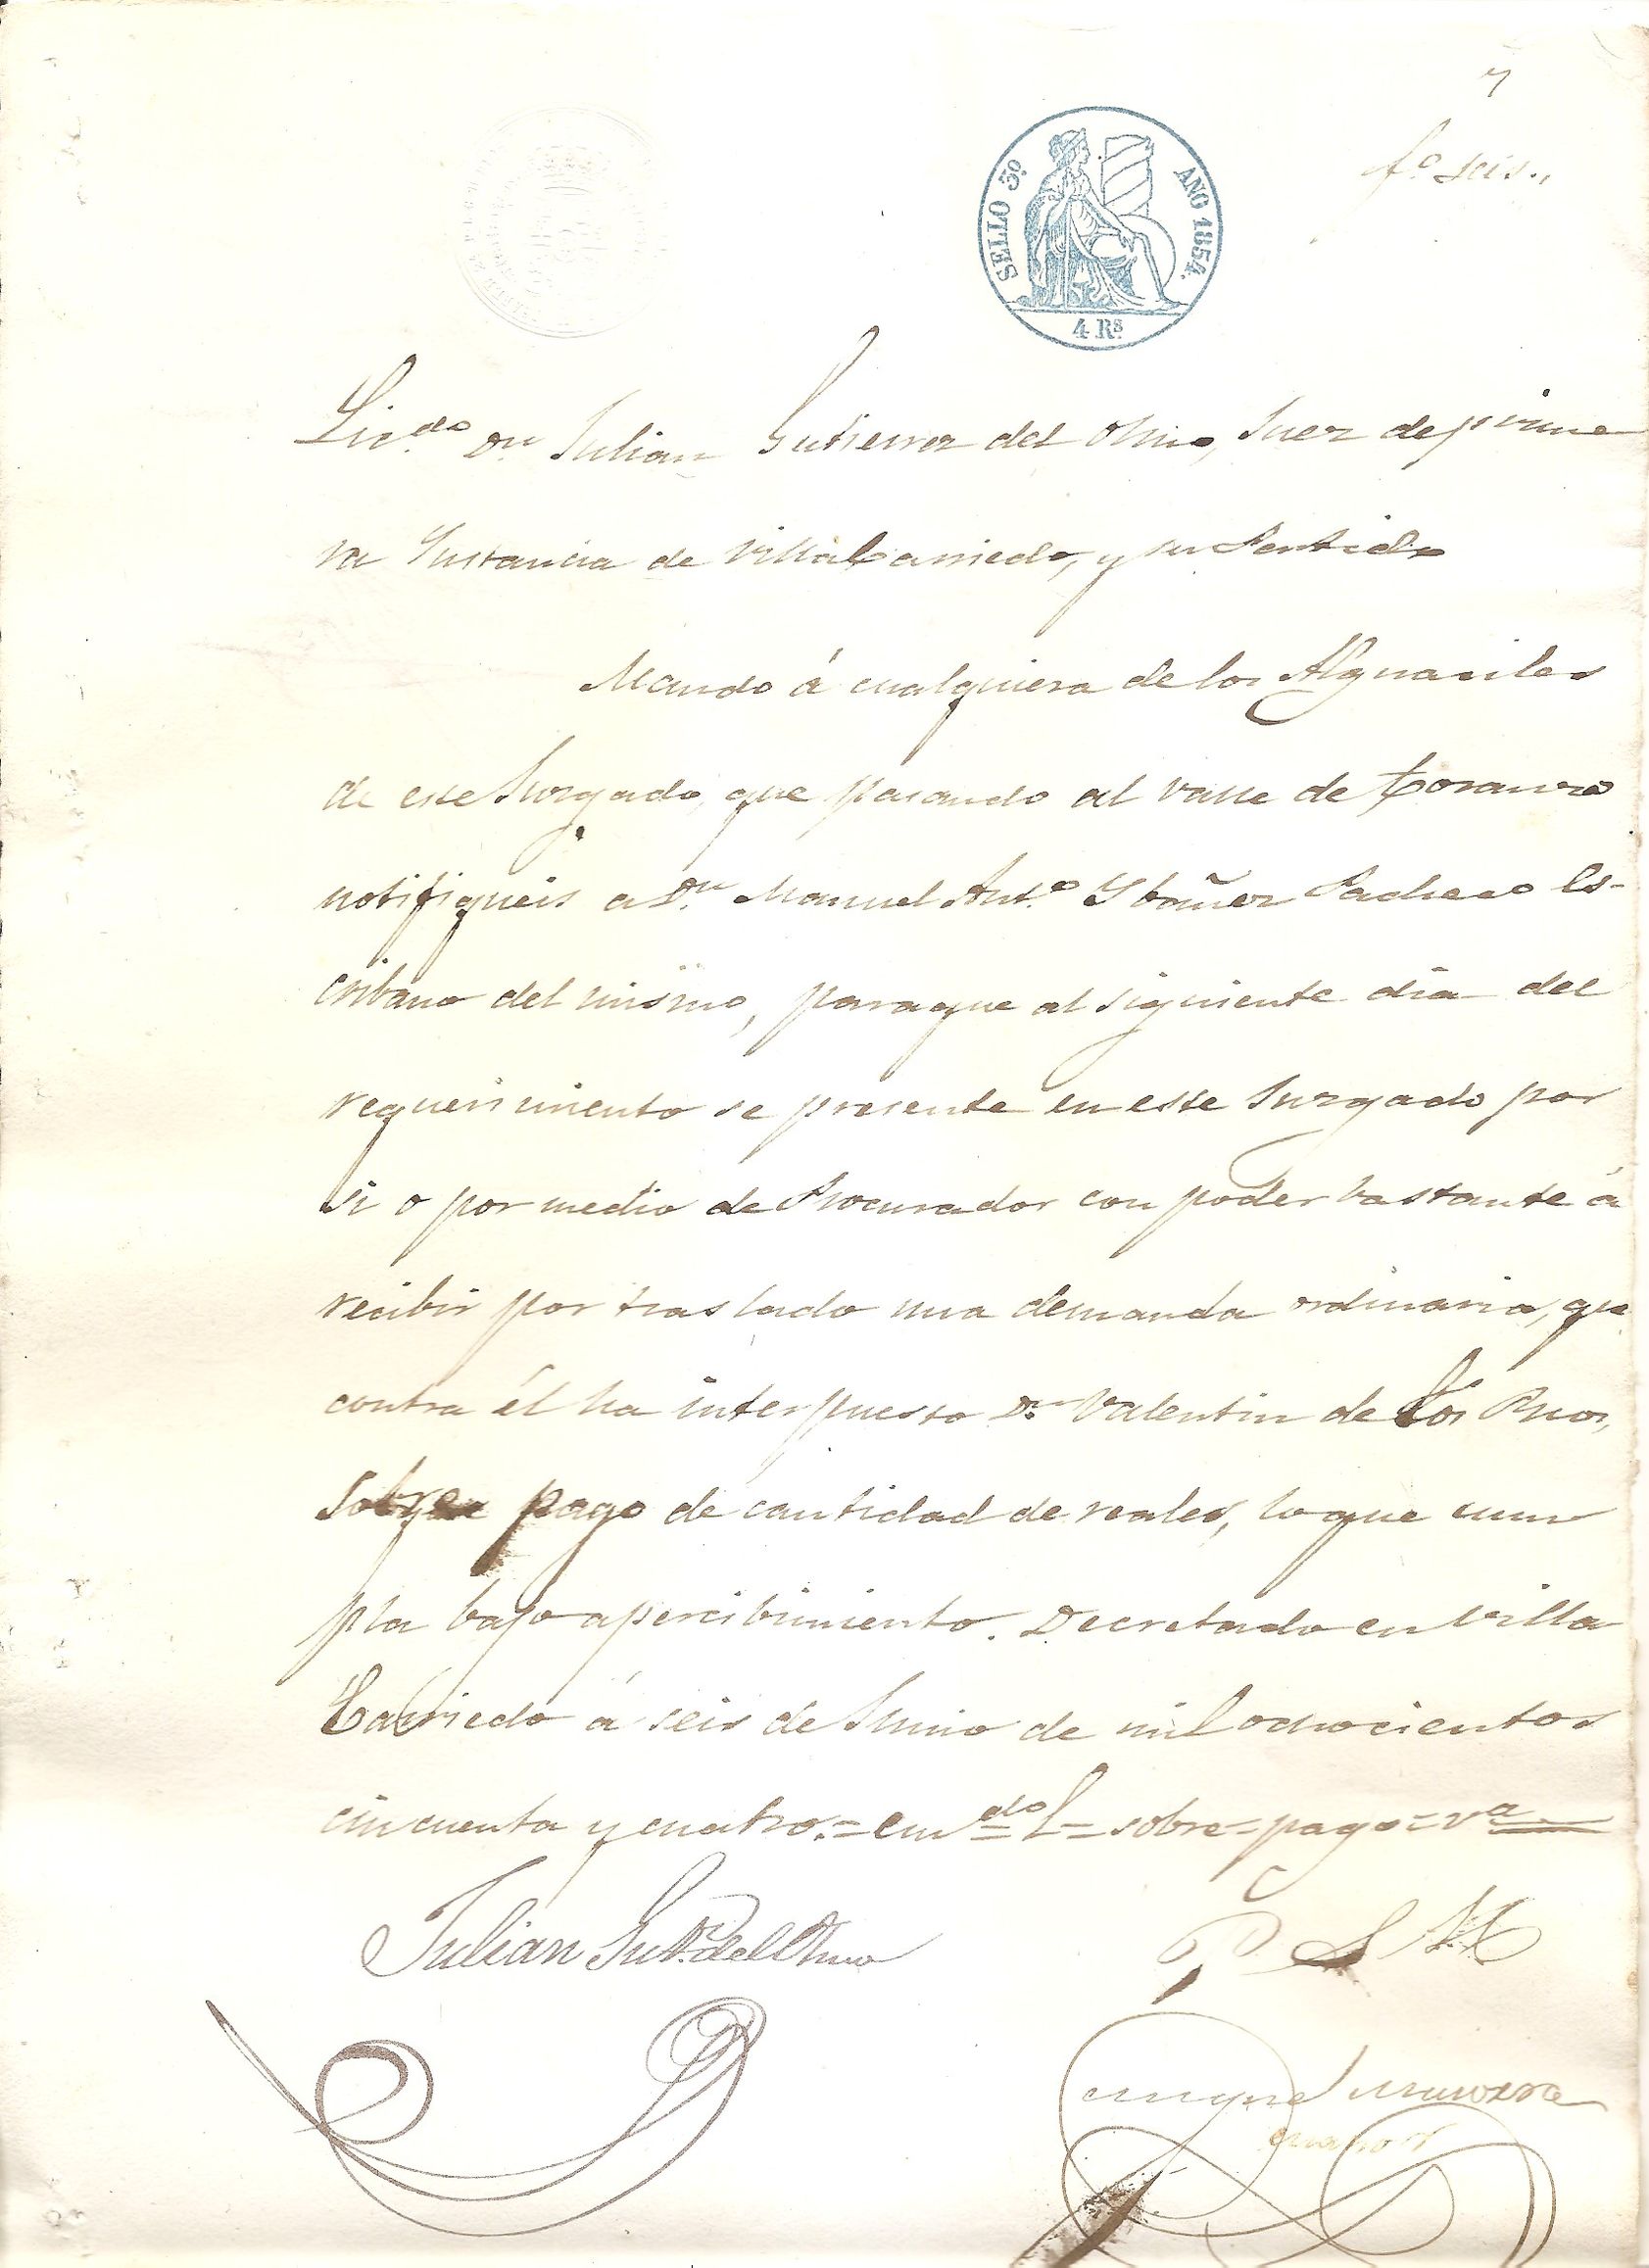 7
f.º seis.,
SELLO 3º AÑO 1854.
4 Rs
Lic.do Dn Julian Gutierrez del Olmo, Juez de prime
ra Instancia de Villacarriedo, y su Partido
Mando á cualquiera de los Alguaciles
de este Juzgado, que pasando al valle de Toranzo
notifiqueis a Dn. Manuel Ant.º Ybañez Pacheco Es-
cribano del mismo, para que al siguiente dia del
requerimiento se presente en este Juzgado por
si o por medio de Procurador con poder bastante á
recibir por traslado una demanda ordinaria, que
contra él ha interpuesto Dn. Valentin de los Rios,
sobre pago de cantidad de reales, lo que cum
pla bajo apercibimiento. Decretado en Villa
Carriedo á seis de Junio de mil ochocientos
cincuenta y cuatro.=Emdo=l=sobre=pago=va=
Julian Gut.z del Olmo
P S M